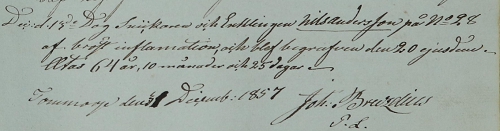 Dec: d. 15de Dog Snickaren och Enklingen Nils Andersson på No 28
af bröst inflamation, och blef begrafven den 20 ejusdem
Ætas 64 år, 10 månader och 25 dagar
Tommarp den 31 Decemb: 1857
Joh. Bruzelius